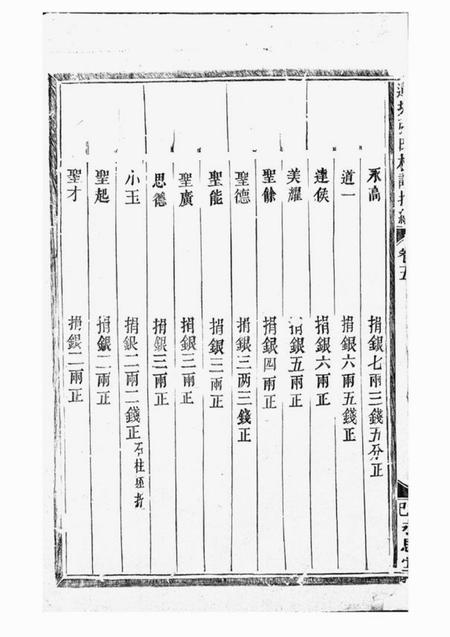 卷五
永高 捐銀七兩三錢五分正
道一 捐銀六兩五錢正
達侯 捐銀六兩正
美耀 捐銀五兩正
聖餘 捐銀四兩正
聖德 捐銀三两三錢正
聖能 捐銀三兩正
聖廣 捐銀三兩正
思德 捐銀三兩正
小玉 捐銀二兩二錢正
聖起 捐銀二兩正
聖才 捐銀二兩正